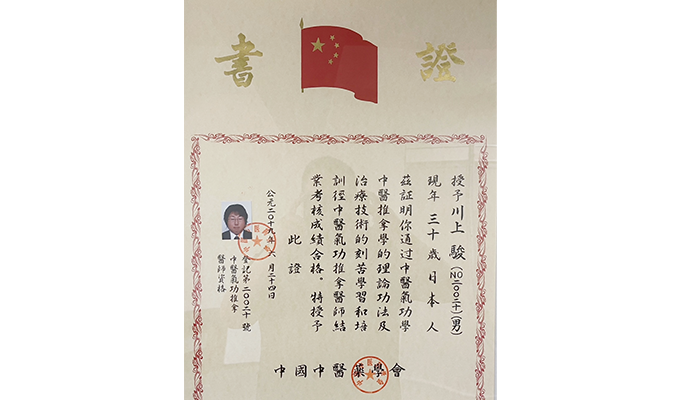 證書
授予川上 駿(NO二00二十)(男)
現年 三十歲日本 人
茲証明你通过中醫氣功學
中醫推拿學的理論功法及
治療技術的刻苦學習和培
訓徑中醫氣功推拿醫師結
業考核成績合格。特授予
此 證
公元二0十九年 六月二十四日
登記第二00二十號
中醫氣功推拿
醫師資格
中國中醫藥學會